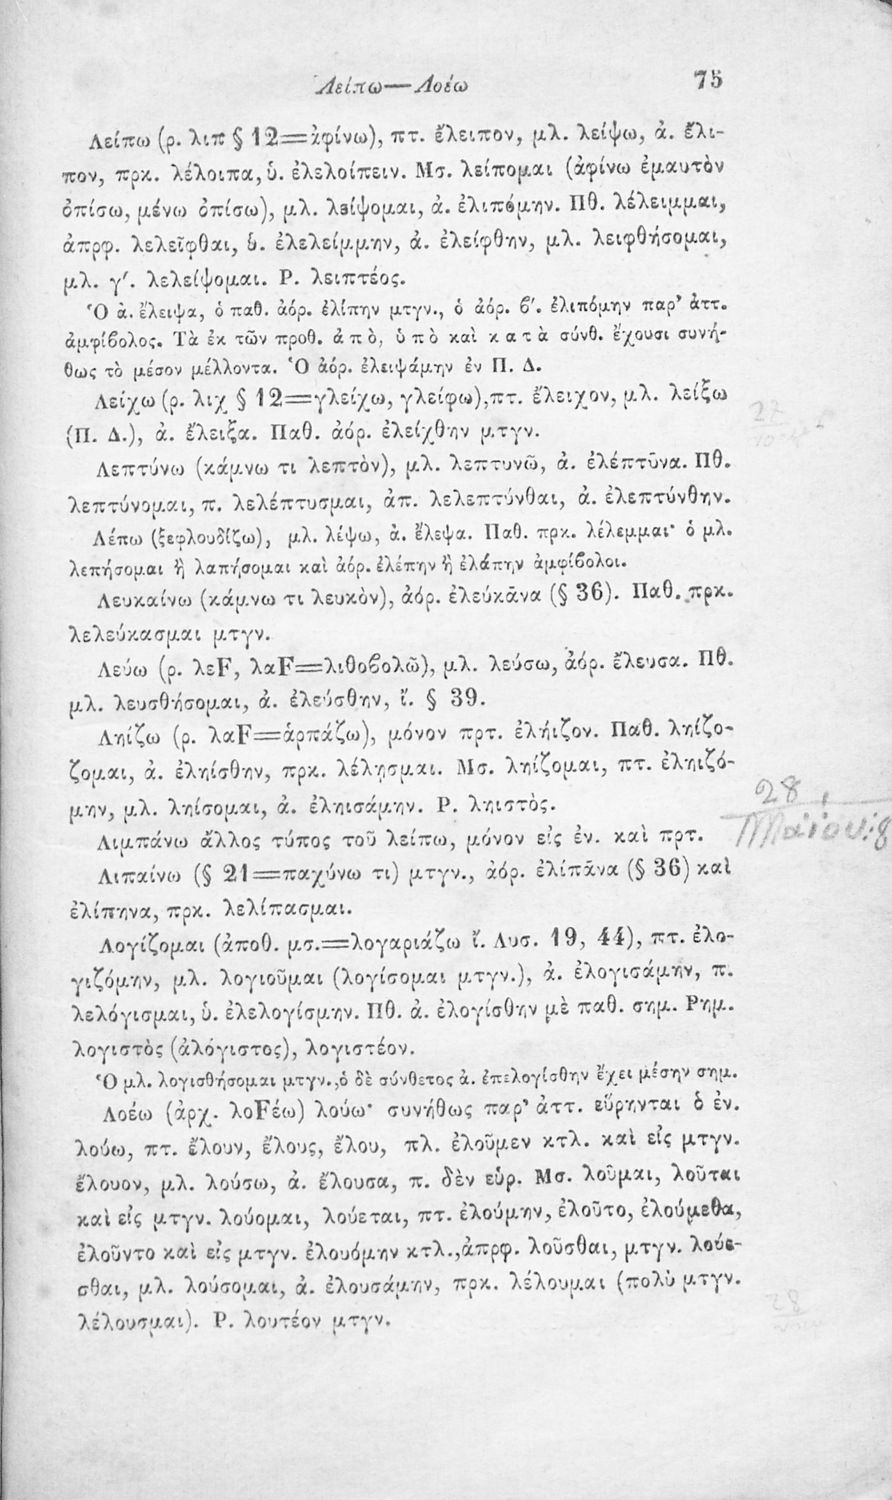 Λείπω—Λοέω 75
Λείπω (ρ. λιπ § 12=ἀφίνω), πτ. ἔλειπον, μλ. λείψω, ἀ. ἔλι-
πον, πρκ. λέλοιπα, ὑ. ἐλελοίπειν. Μσ. λείπομαι (ἀφίνω ἐμαυτὸν
ὀπίσω, μένω ὀπίσω), μλ. λείψομαι, ἀ. ἐλιπόμην. Πθ. λέλειμμαι,
ἀπρφ. λελεῖφθαι, ὑ. ἐλελείμμην, ἀ. ἐλείφθην, μλ. λειφθήσομαι,
μλ. γ′. λελείψομαι. Ρ. λειπτέος.
Ὁ ἀ. ἔλειψα, ὁ παθ. ἀόρ. ἐλίπην μτγν., ὁ ἀόρ. ϐ′. ἐλιπόμην παρ’ ἀττ.
ἀμφίϐολος. Τὰ ἐκ τῶν προθ. ἀπὸ, ὑπὸ καὶ κατὰ σύνθ. ἔχουσι συνή-
θως τὸ μέσον μέλλοντα. Ὁ ἀόρ. ἐλειψάμην ἐν Π. Δ.
Λείχω (ρ. λιχ § 12=γλείχω, γλείφω), πτ. ἔλειχον, μλ. λείξω
(Π. Δ.), ἀ. ἔλειξα. Παθ. ἀόρ. ἐλείχθην μτγν.
27
Λεπτύνω (κάμνω τι λεπτὸν), μλ. λεπτυνῶ, ἀ. ἐλέπτῡνα. Πθ.
λεπτύνομαι, π. λελέπτυσμαι, ἀπ. λελεπτύνθαι, ἀ. ἐλεπτύνθην.
Λέπω (ξεφλουδίζω), μλ. λέψω, ἀ. ἔλεψα. Παθ. πρκ. λέλεμμαι· ὁ μλ.
λεπήσομαι ἢ λαπήσομαι καὶ ἀόρ. ἐλέπην ἢ ἐλάπην ἀμφίϐολοι.
Λευκαίνω (κάμνω τι λευκὸν), ἀόρ. ἐλεύκᾱνα (§ 36). Παθ. πρκ.
λελεύκασμαι μτγν.
Λεύω (ρ. λεF, λαF=λιθοϐολῶ), μλ. λεύσω, ἀόρ. ἔλευσα. Πθ.
μλ. λευσθήσομαι, ἀ. ἐλεύσθην, ἴ. § 39.
Ληίζω (ρ. λαF=ἁρπάζω), μόνον πρτ. ἐλήιζον. Παθ. ληίζο-
ζομαι, ἀ. ἐληίσθην, πρκ. λέλησμαι. Μσ. ληίζομαι, πτ. ἐληιζό-
μην, μλ. ληίσομαι, ἀ. ἐληισάμην. Ρ. ληιστὸς.
28
Μαΐου
Λιμπάνω ἄλλος τύπος τοῦ λείπω, μόνον εἰς ἐν. καὶ πρτ.
Λιπαίνω (§ 21=παχύνω τι) μτγν., ἀόρ. ἐλίπᾱνα (§ 36) καὶ
ἐλίπηνα, πρκ. λελίπασμαι.
Λογίζομαι (ἀποθ. μσ.=λογαριάζω ἴ. Λυσ. 19, 44), πτ. ἐλο-
γιζόμην, μλ. λογιοῦμαι (λογίσομαι μτγν.), ἀ. ἐλογισάμην, π.
λελόγισμαι, ὑ. ἐλελογίσμην. Πθ. ἀ. ἐλογίσθην μὲ παθ. σημ. Ρημ.
λογιστὸς (ἀλόγιστος), λογιστέον.
Ὁ μλ. λογισθήσομαι μτγν., ὁ δὲ σύνθετος ἀ. ἐπελογίσθην ἔχει μέσην σημ.
Λοέω (ἀρχ. λοFέω) λούω· συνήθως παρ’ ἀττ. εὕρηνται ὁ ἐν.
λούω, πτ. ἔλουν, ἔλους, ἔλου, πλ. ἐλοῦμεν κτλ. καὶ εἰς μτγν.
ἔλουον, μλ. λούσω, ἀ. ἔλουσα, π. δὲν εὑρ. Μσ. λοῦμαι, λοῦται
καὶ εἰς μτγν. λούομαι, λούεται, πτ. ἐλούμην, ἐλοῦτο, ἐλούμεθα,
ἐλοῦντο καὶ εἰς μτγν. ἐλουόμην κτλ., ἀπρφ. λοῦσθαι, μτγν. λούε-
σθαι, μλ. λούσομαι, ἀ. ἐλουσάμην, πρκ. λέλουμαι (πολὺ μτγν.
λέλουσμαι). Ρ. λουτέον μτγν.
28